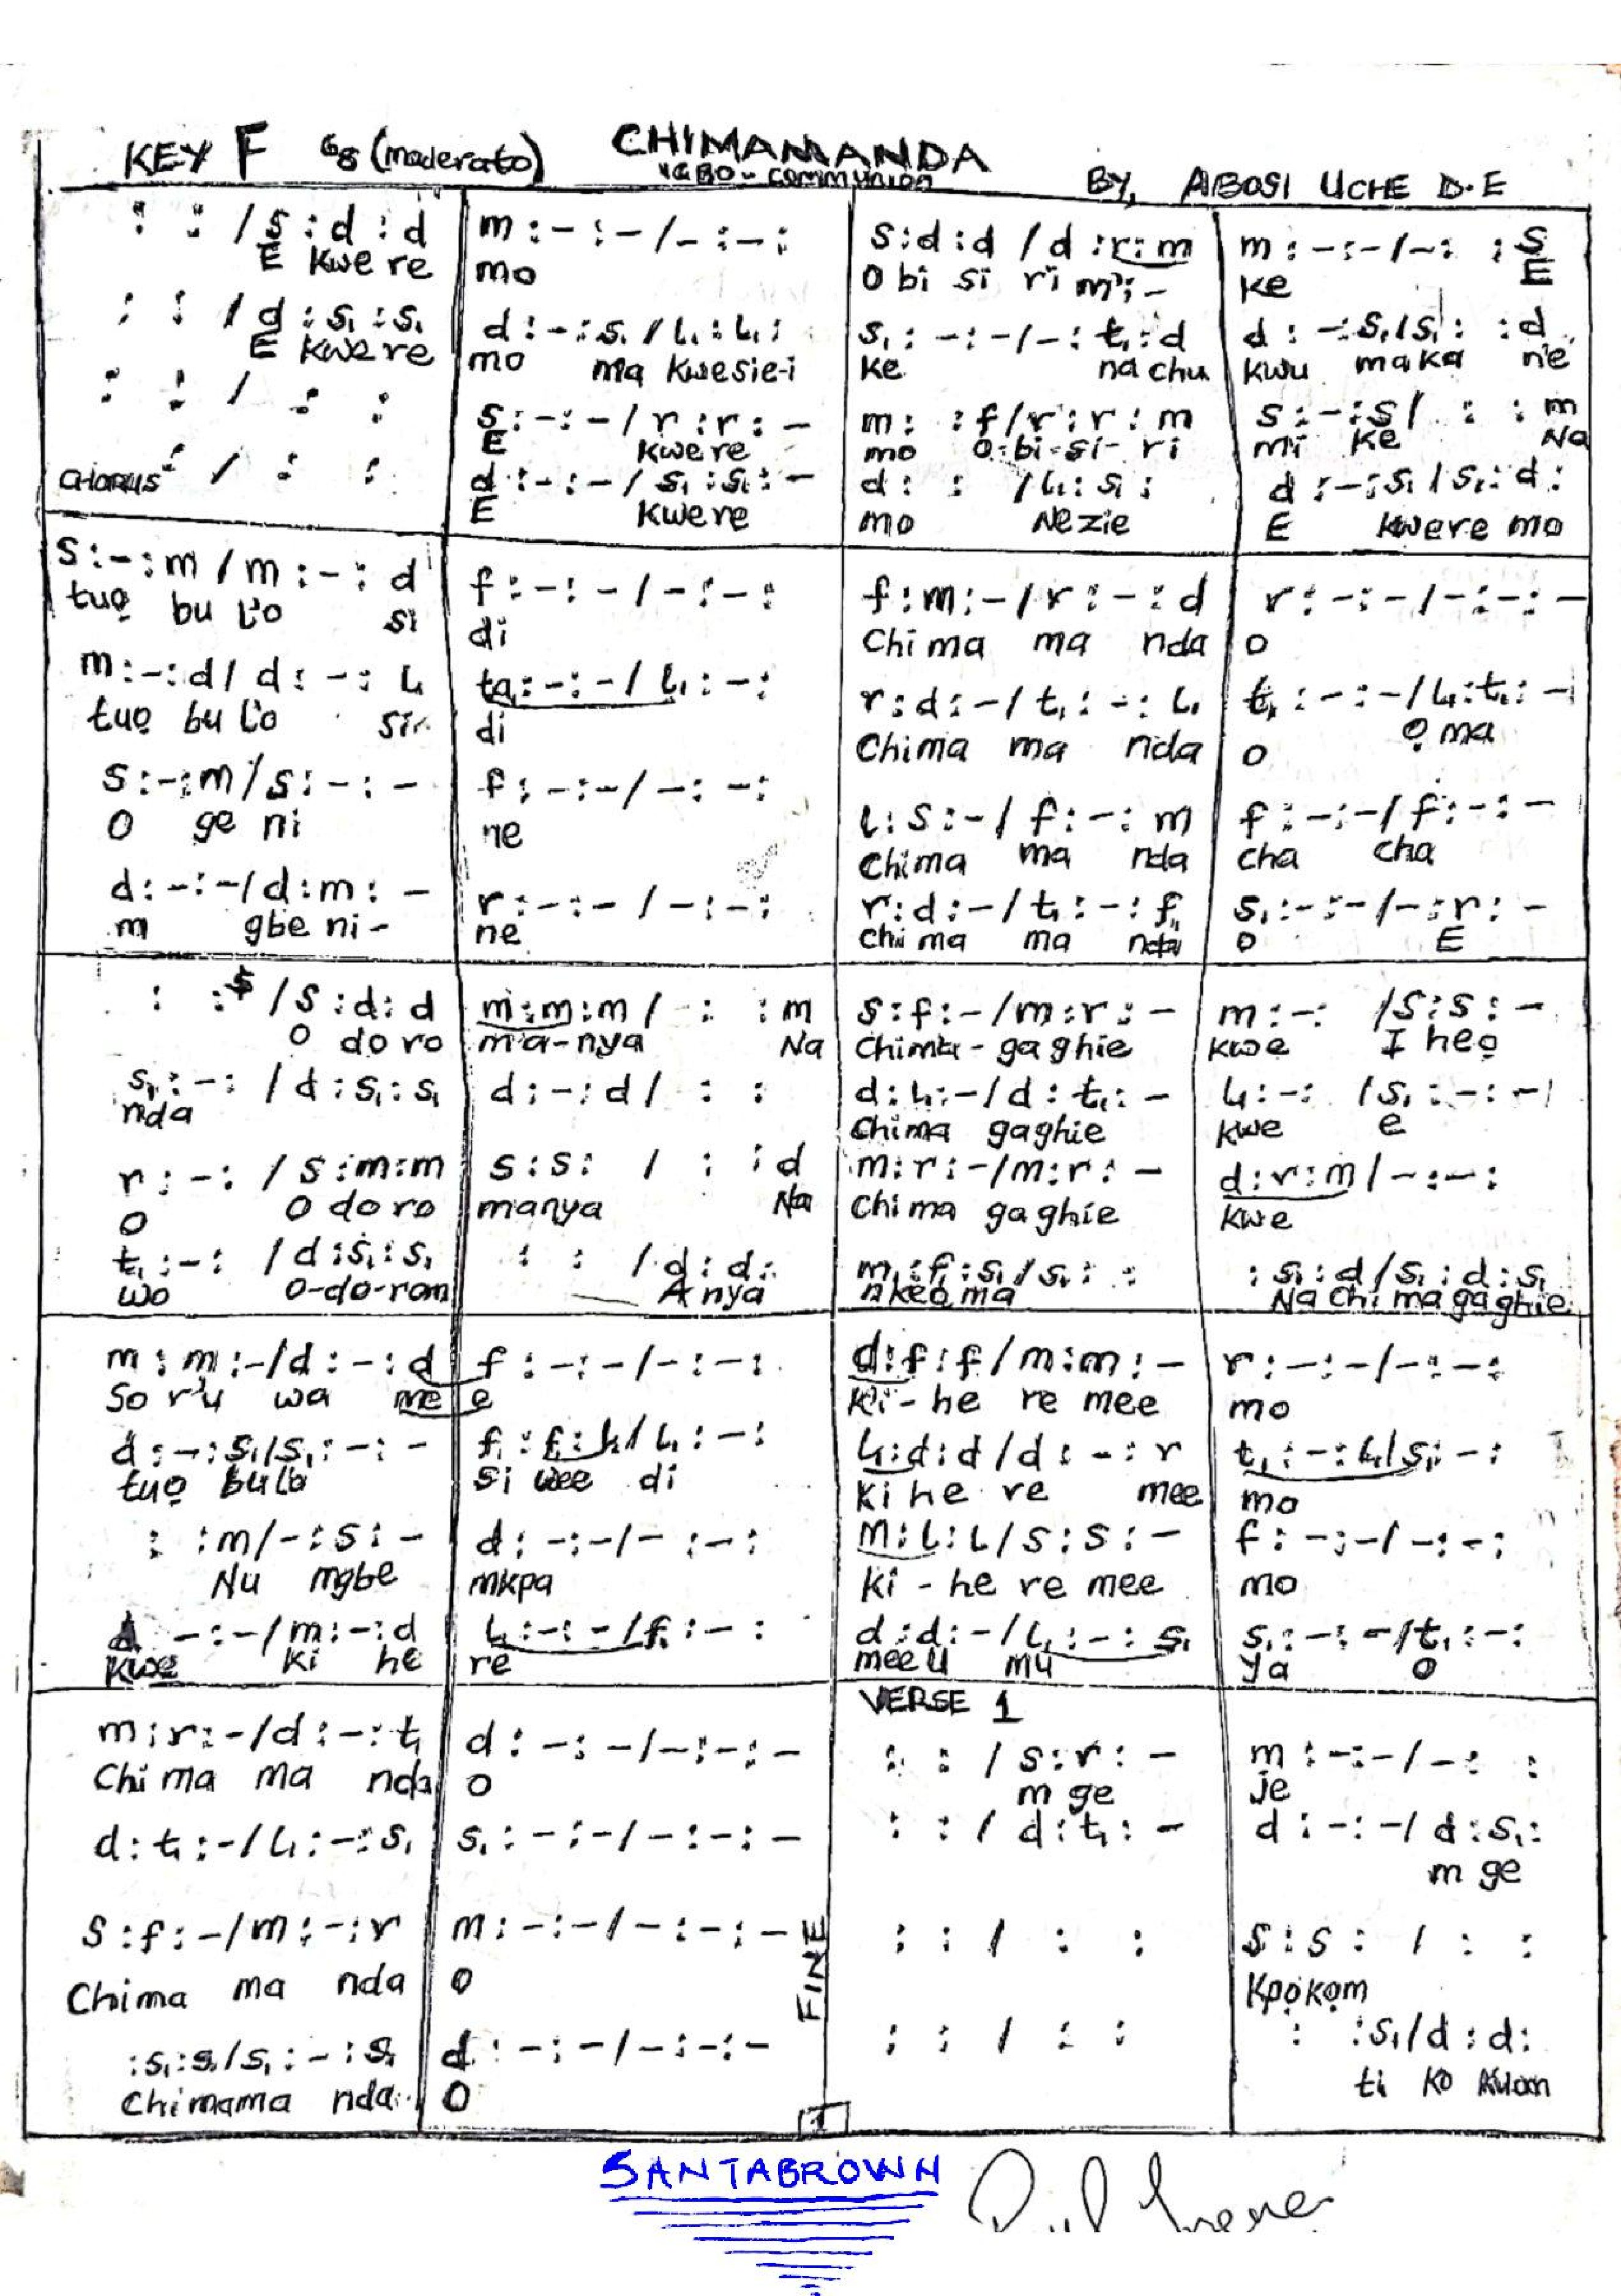 KEY F 6/8 (moderato) CHIMAMANDA
IGBO - COMMUNION BY, ABOSI UCHE D.E
: : / s : d : d | m : - : - / - : - : | s : d : d / d : r : m | m : - : - / - : : s
E kwe re | mo | O bi si ri m' : - | ke E
: : / d : s₁ : s₁ | d : - : s₁ / l₁ : l₁ : | s₁ : - : - / - : t₁ : d | d : - : s₁ / s₁ : : d
E kwe re | mo ma kwesie-i | ke na chu | kwu maka n'e
: : / : : | s : - : - / r : r : - | m : : f / r : r : m | s : - : s / : : m
E kwere | mo O-bi-si-ri | mi ke Na
CHORUS : / : : | d : - : - / s₁ : s₁ : - | d : : / l₁ : s₁ : | d : - : s₁ / s₁ : d :
E kwere | mo Nezie | E kwere mo
s : - : m / m : - : d | f : - : - / - : - : | f : m : - / r : - : d | r : - : - / - : - : -
tuọ bu l'o si | di | Chi ma ma nda | o
m : - : d / d : - : l₁ | ta₁ : - : - / l₁ : - : | r : d : - / t₁ : - : l₁ | t₁ : - : - / l₁ : t₁ : -
tuọ bu l'o si | di | Chima ma nda | o ọ ma
s : - : m / s : - : - | f : - : - / - : - : | l : s : - / f : - : m | f : - : - / f : - : -
O ge ni | ne | Chima ma nda | cha cha
d : - : - / d : m : - | r : - : - / - : - : | r : d : - / t₁ : - : f₁ | s₁ : - : - / - : r : -
m gbe ni- | ne | Chi ma ma nda | o E
: : s / s : d : d | m : m : m / - : : m | s : f : - / m : r : - | m : - : / s : s : -
O do ro | ma-nya Na | Chima - ga ghie | kwe I heọ
s₁ : - : / d : s₁ : s₁ | d : - : d / : : | d : l₁ : - / d : t₁ : - | l₁ : - : / s₁ : - : -
nda | Chima gaghie | kwe e
r : - : / s : m : m | s : s : / : : d | m : r : - / m : r : - | d : r : m / - : - :
O O do ro | manya Na | Chi ma gaghie | kwe
t₁ : - : / d : s₁ : s₁ | : : / d : d : | m₁ : f₁ : s₁ / s₁ : : | : s₁ : d / s₁ : d : s₁
wo o-do-rom | A nya | nkeọma | Na Chi ma ga ghie
m : m : - / d : - : d | f : - : - / - : - : | d : f : f / m : m : - | r : - : - / - : - :
So r'u wa me | e | Ki - he re mee | mo
d : - : s₁ / s₁ : - : - | f₁ : f₁ : l₁ / l₁ : - : | l₁ : d : d / d : - : r | t₁ : - : l₁ / s₁ : - :
tuọ bulo | si wee di | Ki he re mee | mo
: : m / - : s : - | d : - : - / - : - : | m : l : l / s : s : - | f : - : - / - : - :
Nu mgbe | mkpa | Ki - he re mee | mo
d - : - / m : - : d | l₁ : - : - / f₁ : - : | d : d : - / l₁ : - : s₁ | s₁ : - : - / t₁ : - :
kwe ki he | re | mee u mu | ya o
VERSE 1
m : r : - / d : - : t₁ | d : - : - / - : - : - | : : / s : r : - | m : - : - / - : :
Chi ma ma nda | o | m ge | je
d : t₁ : - / l₁ : - : s₁ | s₁ : - : - / - : - : - | : : / d : t₁ : - | d : - : - / d : s₁ :
m ge
s : f : - / m : - : r | m : - : - / - : - : - | : : / : : | s : s : / : :
Chima ma nda | o | Kpọkọm
FINE
: s₁ : s₁ / s₁ : - : s₁ | d : - : - / - : - : - | : : / : : | : : s₁ / d : d :
Chimama nda | O | ti ko
1
SANTABROWN